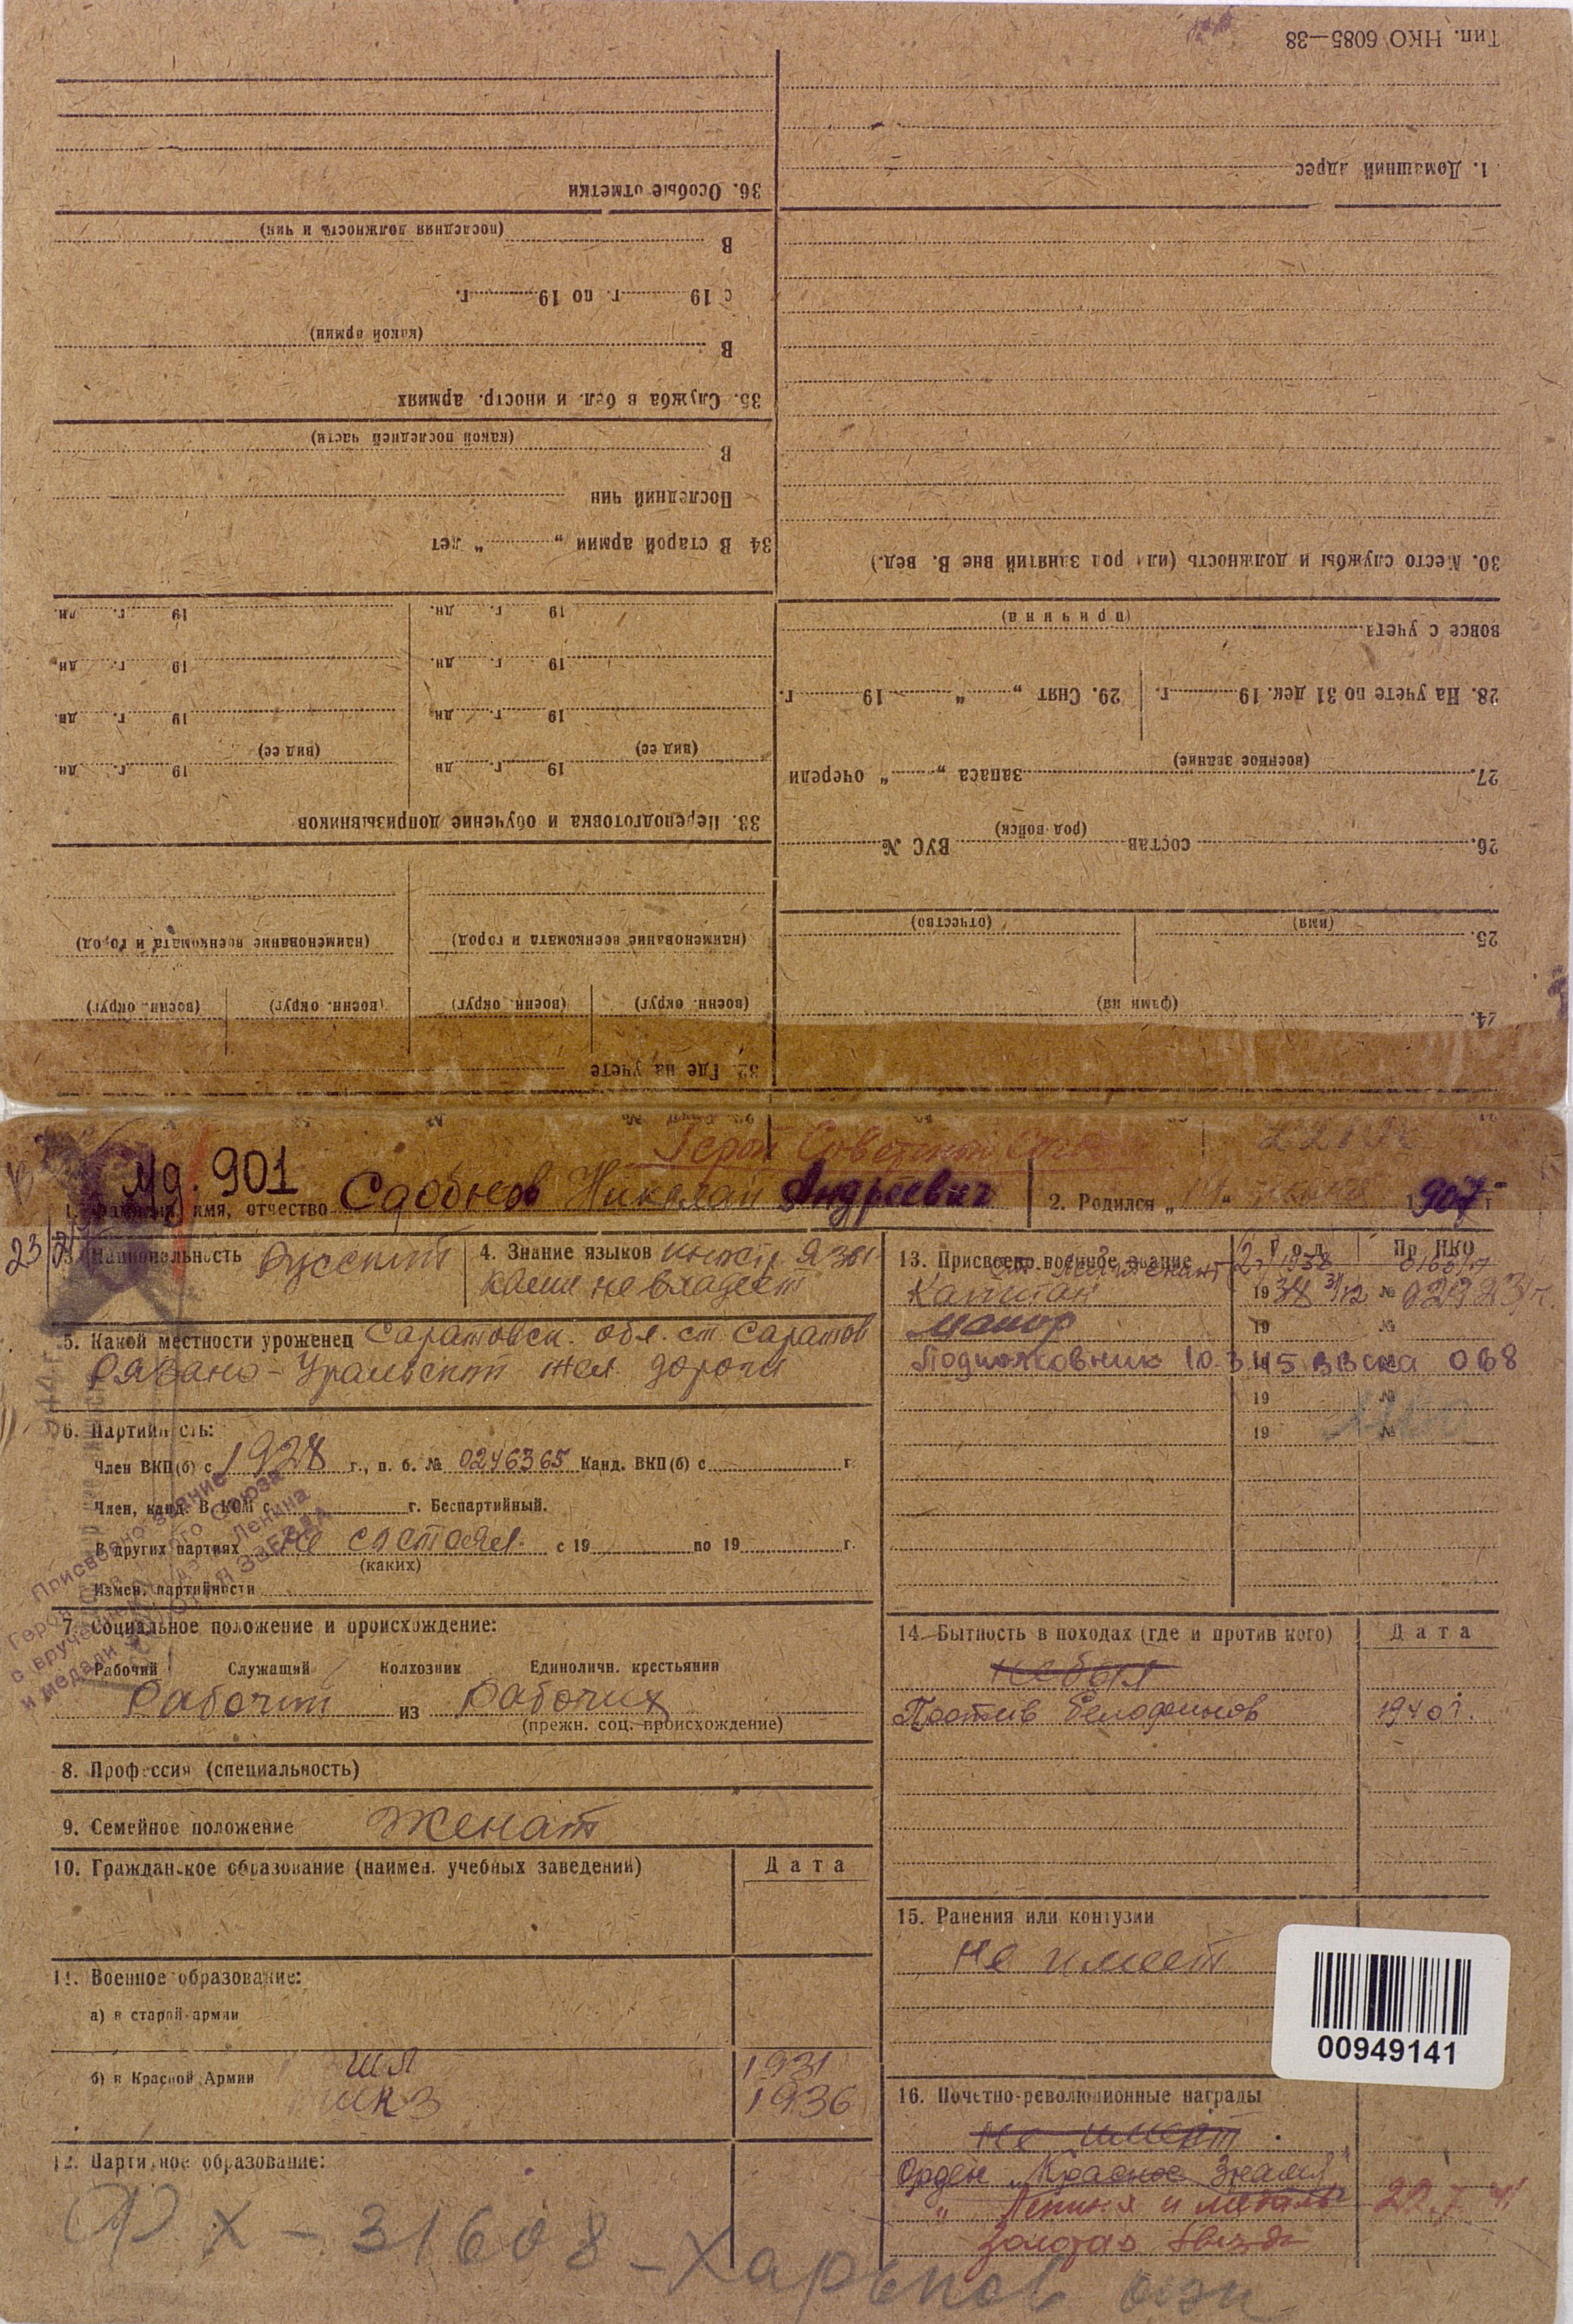 Тип. НКО 6085—38
1. Домашний адрес
30. Место службы и должность (или род занятий вне В. вед.)
вовсе с учета
(причина)
28. На учете по 31 дек. 19 г. 29. Снят „ “ 19 г.
27. (военное звание) запаса „ “ очереди
26. состав (род войск) ВУС №
25. (имя) (отчество)
24. (фамилия)
36. Особые отметки
В (последняя должность и чин)
с 19 г. по 19 г.
В (какой армии)
35. Служба в бел. и иностр. армиях
В (какой последней части)
Последний чин
34 В старой армии „ “ лет
19 г. дн. 19 г. дн.
19 г. дн. 19 г. дн.
19 г. дн. 19 г. дн.
(вид ее) 19 г. дн (вид ее) 19 г. дн.
33. Переподготовка и обучение допризывников
(наименование военкомата и город) (наименование военкомата и город)
(военн. округ) (военн. округ) (военн. округ) (военн. округ)
32. Где на учете
Герой Советского Союза
Мд. 901
1. Фамилия, имя, отчество Сдобнов Николай Андреевич
2. Родился „ “ 1907 г
3. Национальность Русский
4. Знание языков
не владеет
5. Какой местности уроженец Саратовск. обл. ст. Саратов
Рязано-Уральской жел. дороги
6. Партийность:
Член ВКП(б) с 1928 г., п. б. № 0246365 Канд. ВКП(б) с г.
Член, канд. ВЛКСМ с г. Беспартийный.
В других партиях не состоял с 19 по 19 г.
(каких)
Измен. партийности
Присвоено звание
Героя Советского Союза
с вручением ордена Ленина
и медали ЗОЛОТАЯ ЗВЕЗДА
7. Социальное положение и происхождение:
Рабочий Служащий Колхозник Единоличн. крестьянин
Рабочий из Рабочих
(прежн. соц. происхождение)
8. Профессия (специальность)
9. Семейное положение Женат
10. Гражданское образование (наимен. учебных заведений) Дата
11. Военное образование:
а) в старой армии
б) в Красной Армии
1931
1936
12. Партийное образование:
13. Присвоено военное звание Год Пр. НКО
Ст. Лейтенант 1938
Капитан 1938 31/12 № 02923/п.
Майор 19 №
Подполковник 10.3.45 ВВС КА 068
19 №
19 №
14. Бытность в походах (где и против кого) Дата
не был
Против белофинов 1940 г.
15. Ранения или контузии
Не имеет
00949141
16. Почетно-революционные награды
Не имеет
Орден „Красное Знамя"
" Ленина и медаль 22.7.41
Золотая Звезда
Х - 31608 - Харьков